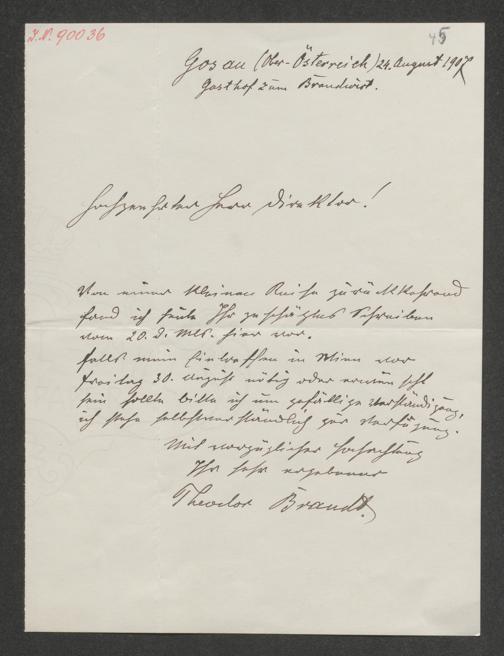 I.N. 90036
45
Gosau (Ober-Österreich) 24. August 1907
Gasthof zum Brandwirt.
Hochgeehrter Herr Direktor!
Von einer kleinen Reise zurückkehrend
fand ich heute Ihr geschätztes Schreiben
vom 20. d. Mts. hier vor.
Falls mein Eintreffen in Wien vor
Freitag 30. August nötig oder erwünscht
sein sollte bitte ich um gefällige Verständigung,
ich stehe selbstverständlich zur Verfügung.
Mit vorzüglicher Hochachtung
Ihr sehr ergebener
Theodor Brandt.